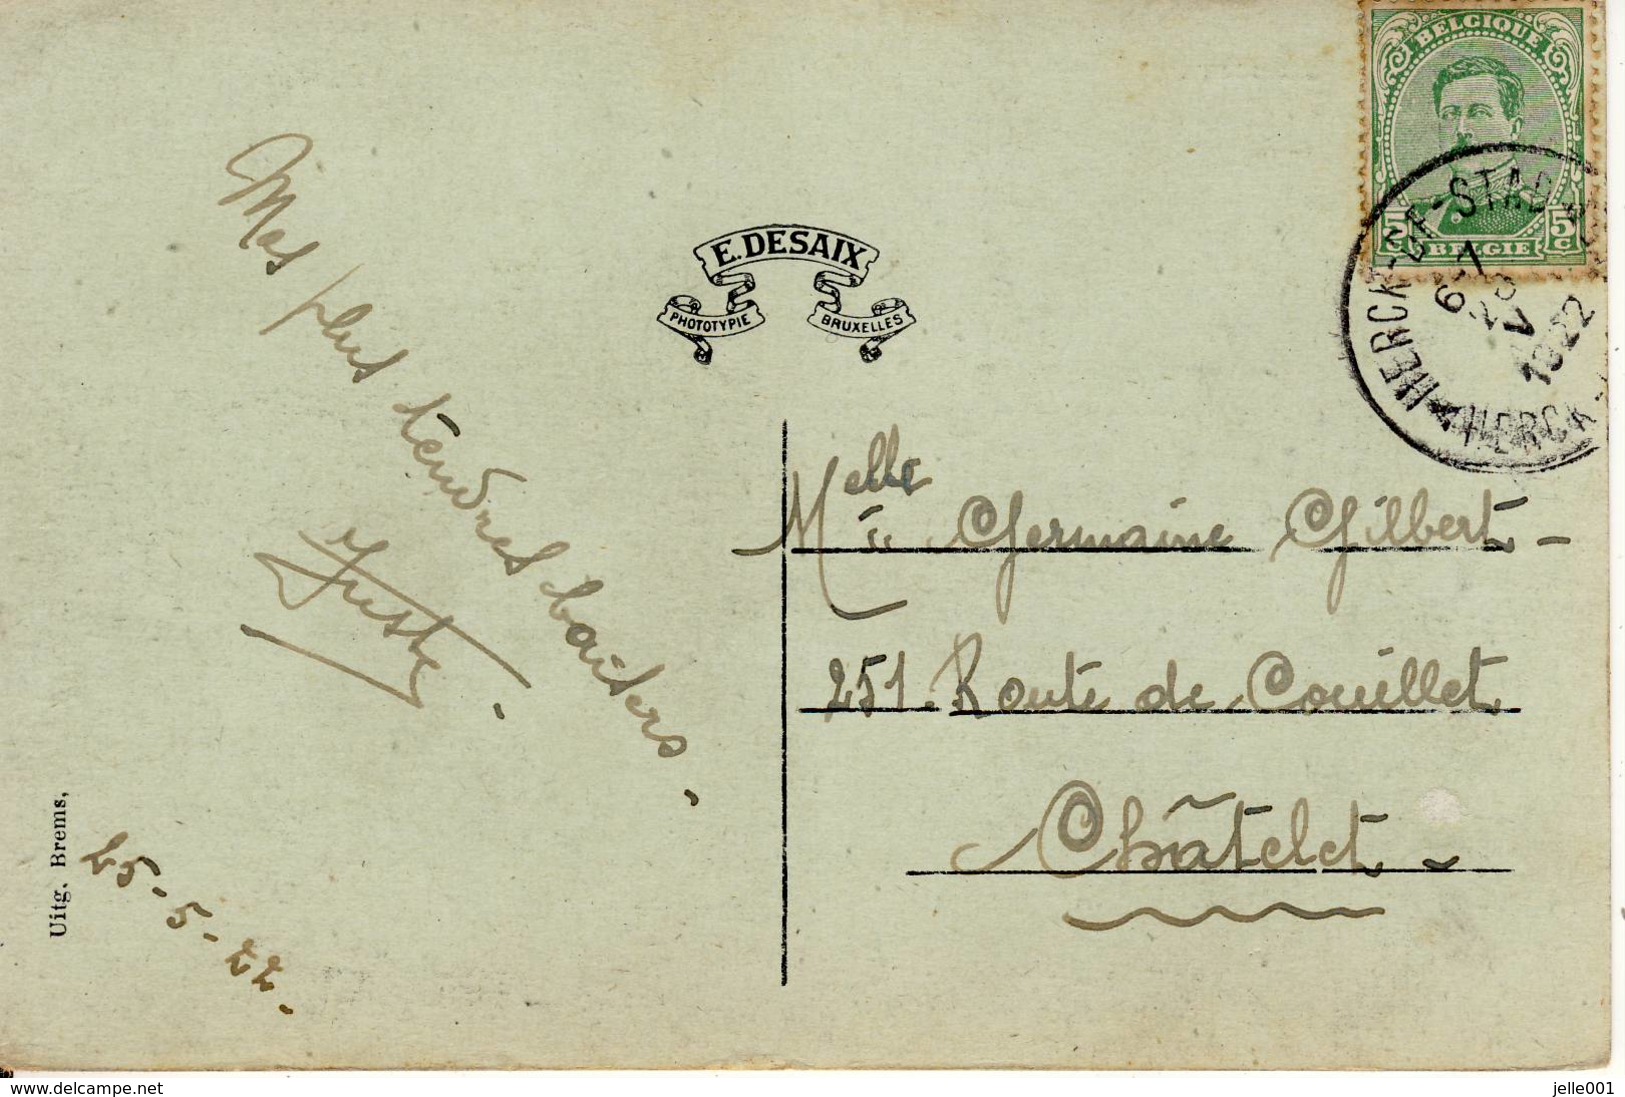 BELGIQUE
5 C
5 C
BELGIE
HERCK-LA-
-STAD
HERCK
6-7
V
1922
E. DESAIX
PHOTOTYPIE
BRUXELLES
Mes plus tendres baisers -
Juste -
25-5-22-
Uitg. Brems,
Melle Germaine Gilbert -
251. Route de Couillet.
Châtelet -
www.delcampe.net
jelle001